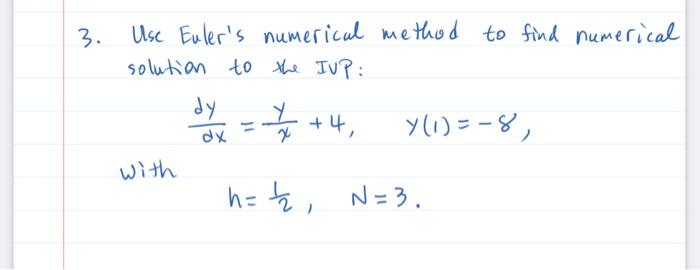 3. Use Euler's numerical method to find numerical
solution to the IVP:
dy/dx = y/x + 4, y(1) = -8,
with
h = 1/2, N = 3.